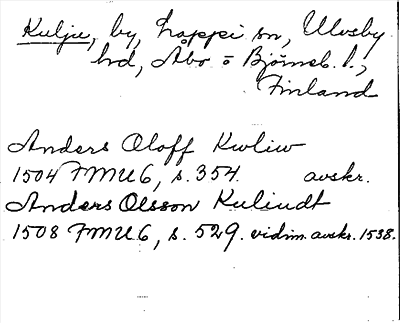 Kulju, by, Loppi sn, Ulvsby
hd, Åbo o Björneb. l.,
Finland
Anders Oloff Kwliw
1504 FMU 6, s. 354. avskr.
Anders Olsson Kuliudt
1508 FMU 6, s. 529. vidim. avskr. 1538.